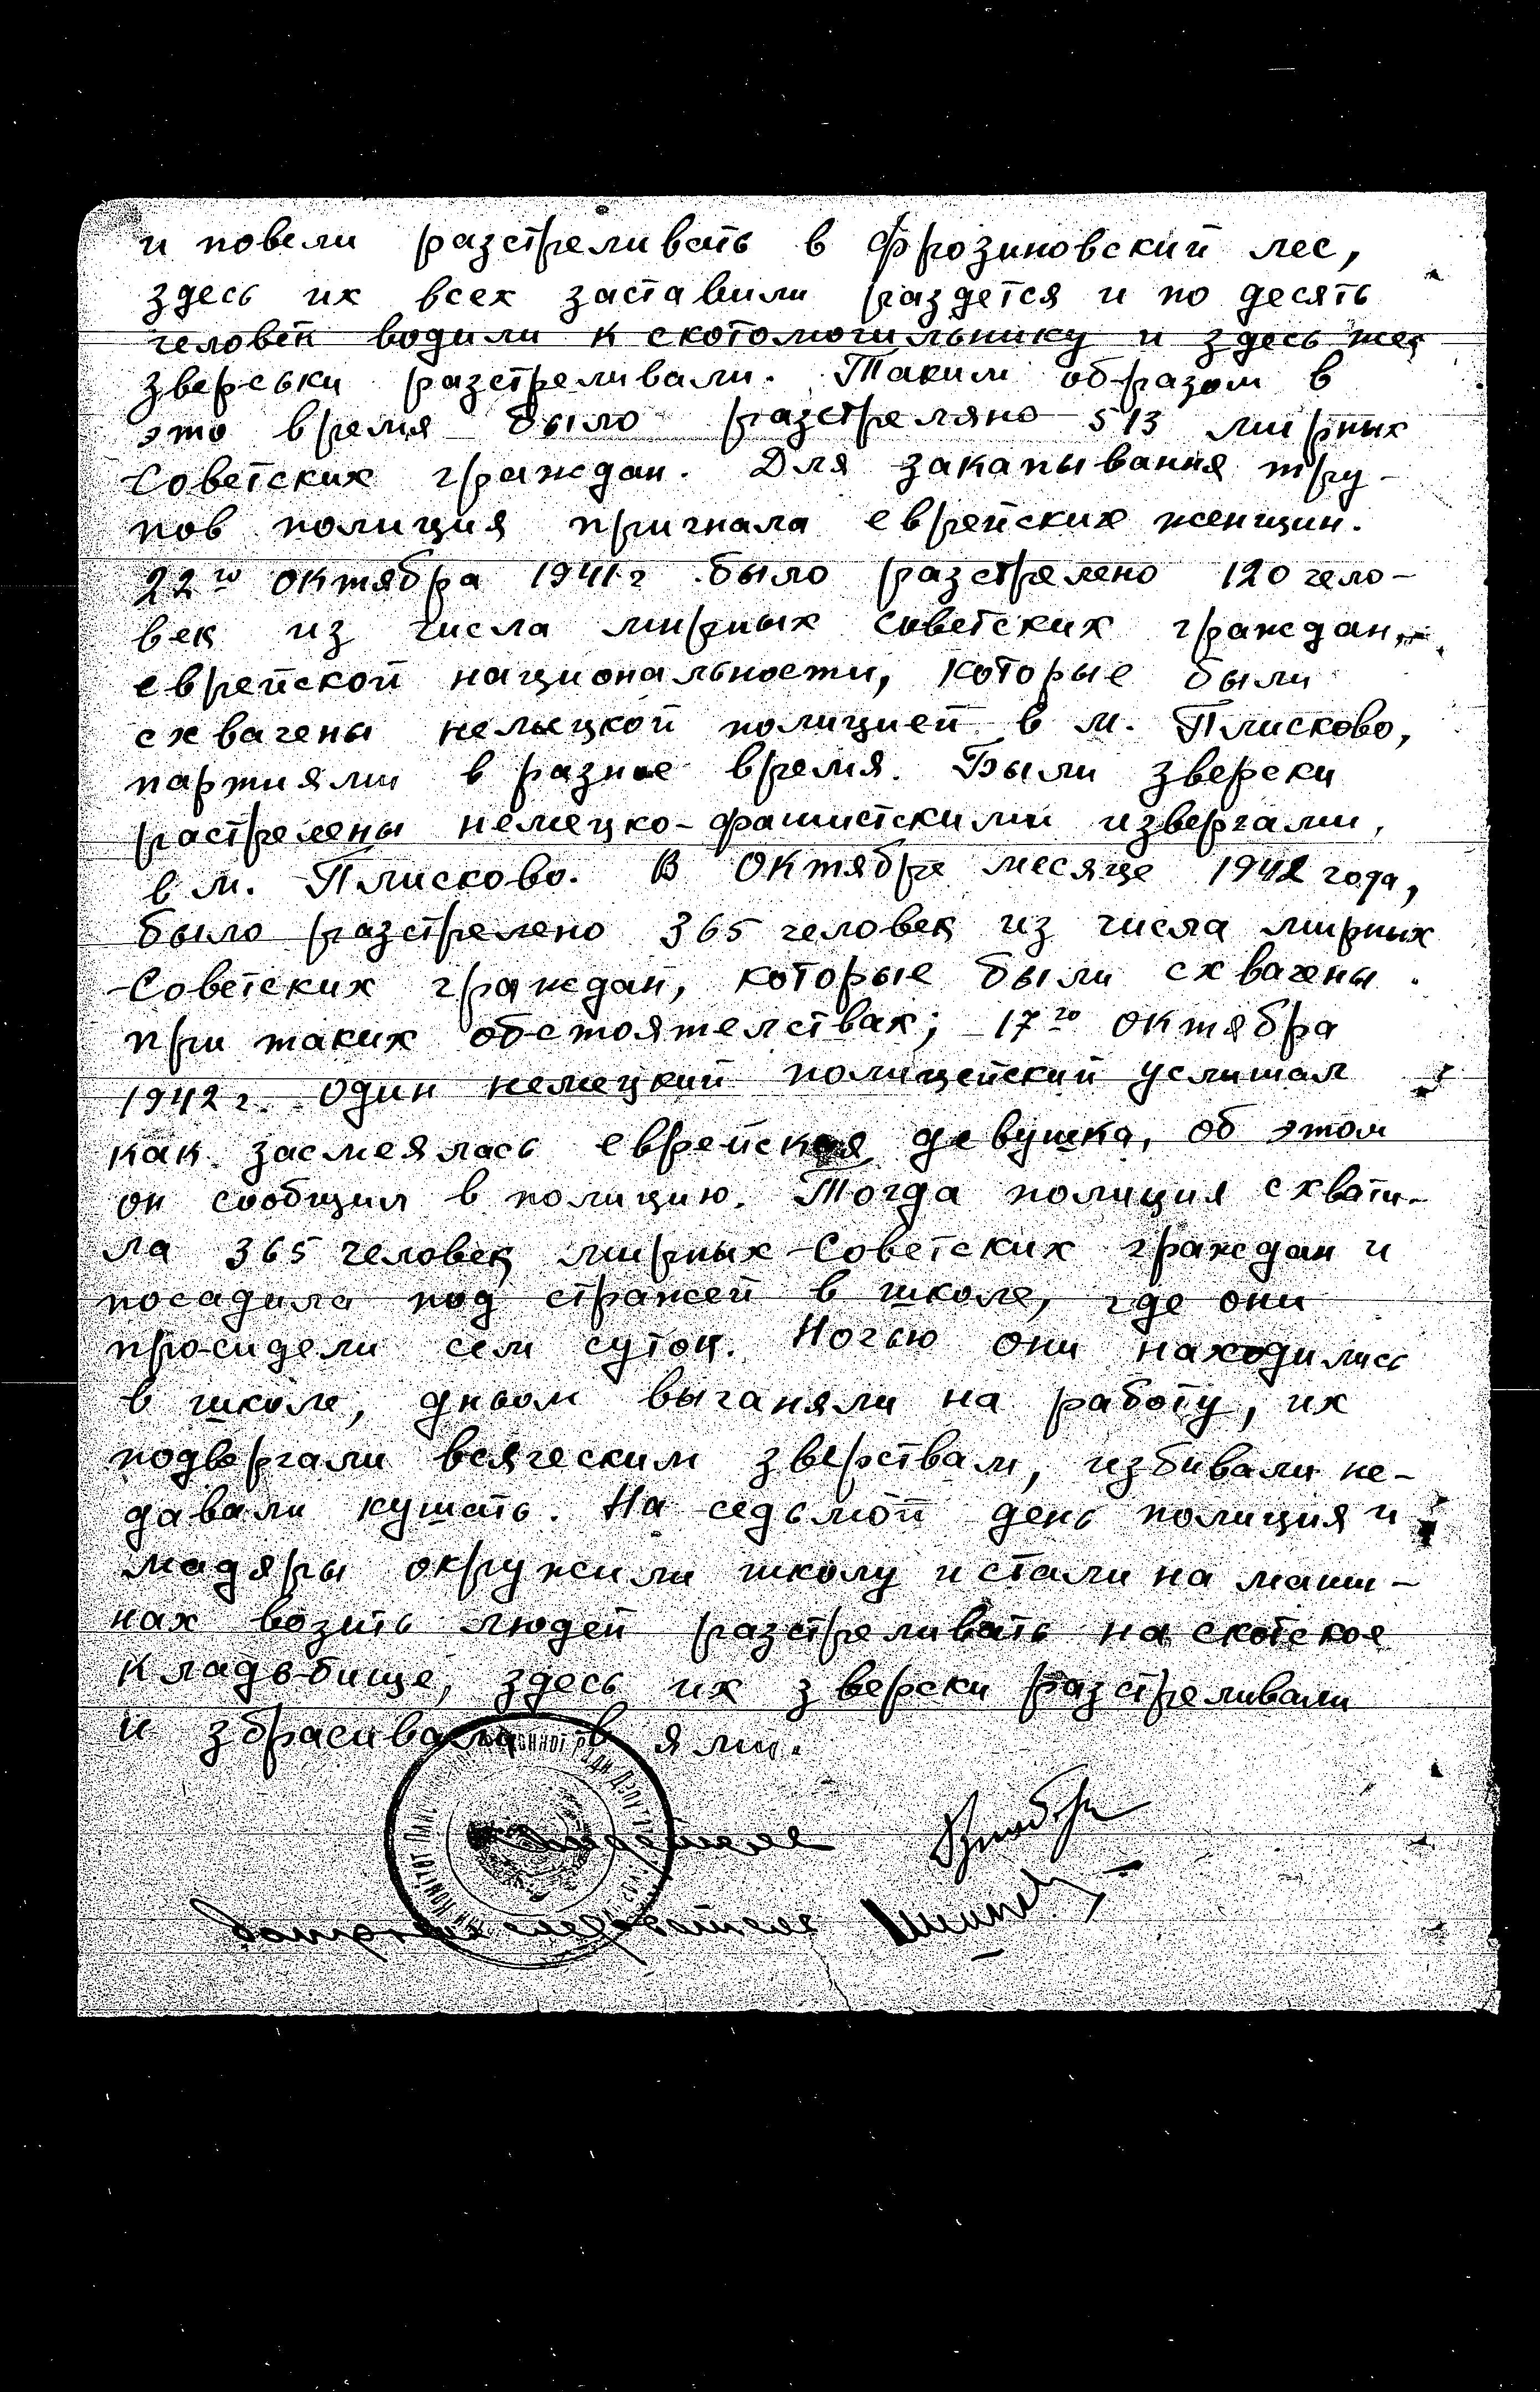 и повели разстреливать в Фрозиновский лес,
здесь их всех заставили раздется и по десять
человек водили к скотомогильнику и здесь же
зверськи разстреливали. Таким образом в
это время было разстреляно 513 мирных
Советских граждан. Для закапывания тру-
пов полиция пригнала еврейских женщин.
22го октября 1941г было разстрелено 120 чело-
век из числа мирных советских граждан,
еврейской национальности, которые были
схвачены немыцкой полицией в м. Плисково,
партиями в разное время. Были зверски
растрелены немецко-фашистскими извергами,
в м. Плисково. В Октябре месяце 1942 года,
было разстрелено 365 человек из числа мирных
Советских граждан, которые были схвачены
при таких обстоятелствах; 17го октября
1942г. один немецкий полицейский услишал
как засмеялась еврейская девушка, об этом
он сообщил в полицию. Тогда полиция схвати-
ла 365 человек мирных Советских граждан и
посадила под стражей в школе, где они
просидели сем суток. Ночью они находились
в школе, дньом выганяли на работу, их
подвергали всяческим зверствам, избивали не-
давали кушать. На седьмой день полиция и
мадяры окружили школу и стали на маши-
нах возить людей разстреливать на скотское
кладьбище, здесь их зверски разстреливали
и збрасивали в ями.